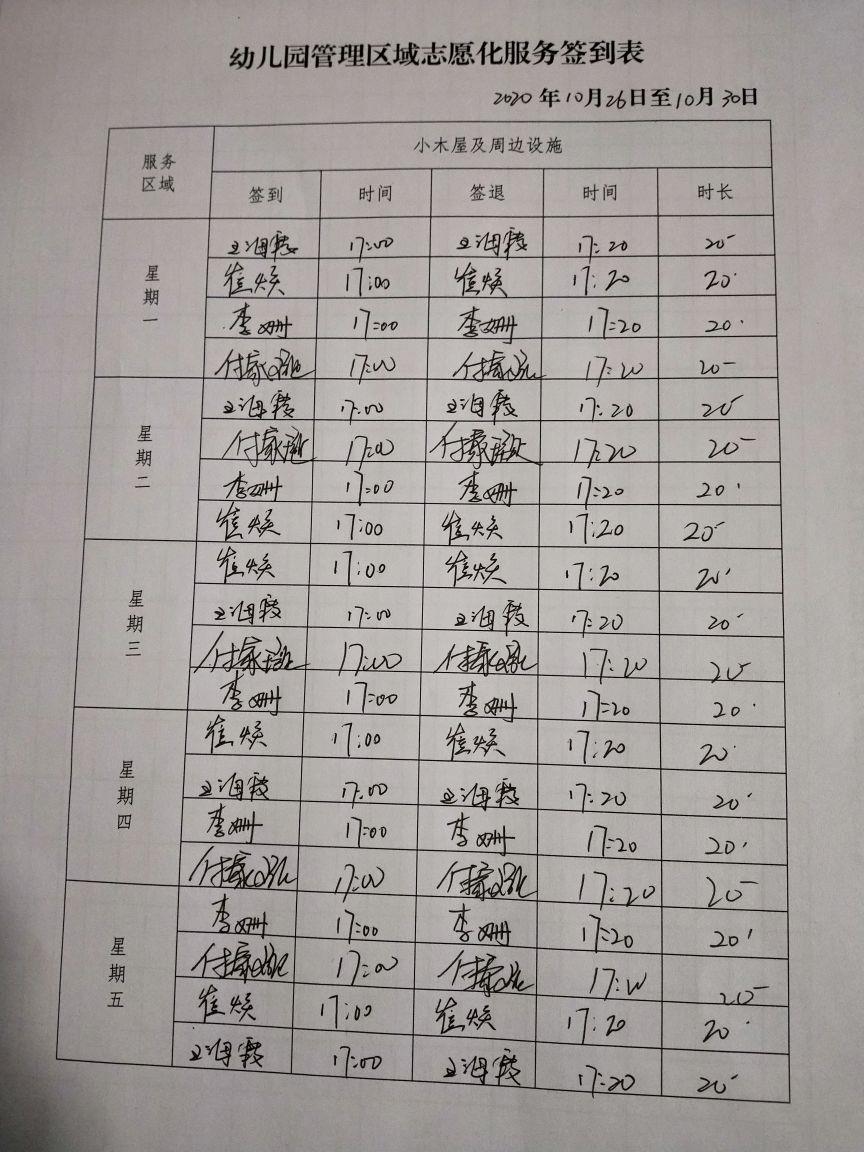 幼儿园管理区域志愿化服务签到表
2020年10月26日至10月30日
服务区域 小木屋及周边设施
签到 时间 签退 时间 时长
星期一
王海霞 17:00 王海霞 17:20 20'
崔焕 17:00 崔焕 17:20 20'
李姗 17:00 李姗 17:20 20'
付家 17:00 付家 17:20 20'
星期二
王海霞 17:00 王海霞 17:20 20'
付家 17:00 付家 17:20 20'
李姗 17:00 李姗 17:20 20'
崔焕 17:00 崔焕 17:20 20'
星期三
崔焕 17:00 崔焕 17:20 20'
王海霞 17:00 王海霞 17:20 20'
付家 17:00 付家 17:20 20'
李姗 17:00 李姗 17:20 20'
星期四
崔焕 17:00 崔焕 17:20 20'
王海霞 17:00 王海霞 17:20 20'
李姗 17:00 李姗 17:20 20'
付家 17:00 付家 17:20 20'
星期五
李姗 17:00 李姗 17:20 20'
付家 17:00 付家 17:20 20'
崔焕 17:00 崔焕 17:20 20'
王海霞 17:00 王海霞 17:20 20'